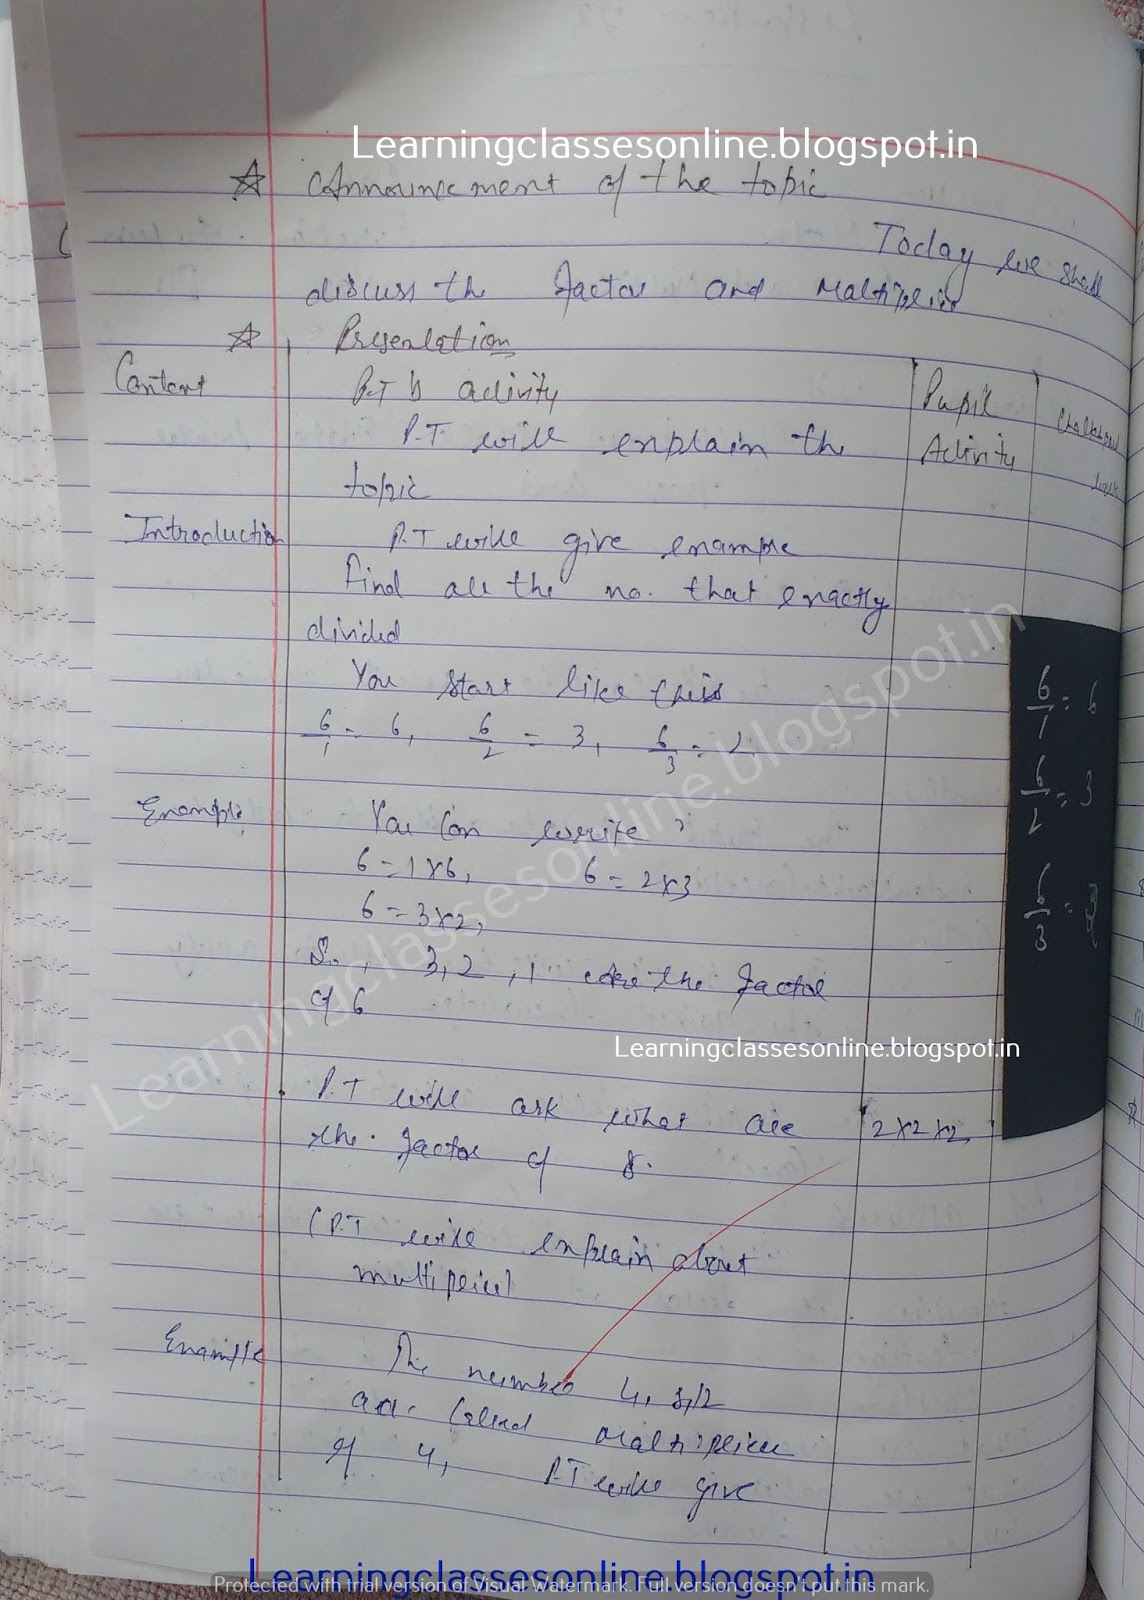 Learningclassesonline.blogspot.in
☆ Announcement of the topic
Today we shall
discuss the factor and Maltiplier
☆ Presentation
Content P.T's activity Pupil Activity Chalkboard work
P.T will enplain the
topic
Introduction P.T will give enample
Find all the no. that enactly
divided
You start like this
6/1 = 6, 6/2 = 3, 6/3 = 2,
6/1 = 6
6/2 = 3
6/3 = 2
Enample You Can write
6 = 1×6, 6 = 2×3
6 = 3×2,
So, 3, 2, 1 are the factor
of 6
Learningclassesonline.blogspot.in
P.T will ask what are 2×2×2
the factor of 8.
(P.T will enplain about
Enample The number 4, 8, 12
are Called
of 4, P.T will give
Learningclassesonline.blogspot.in
Learningclassesonline.blogspot.in
Protected with trial version of Visual Watermark. Full version doesn't put this mark.